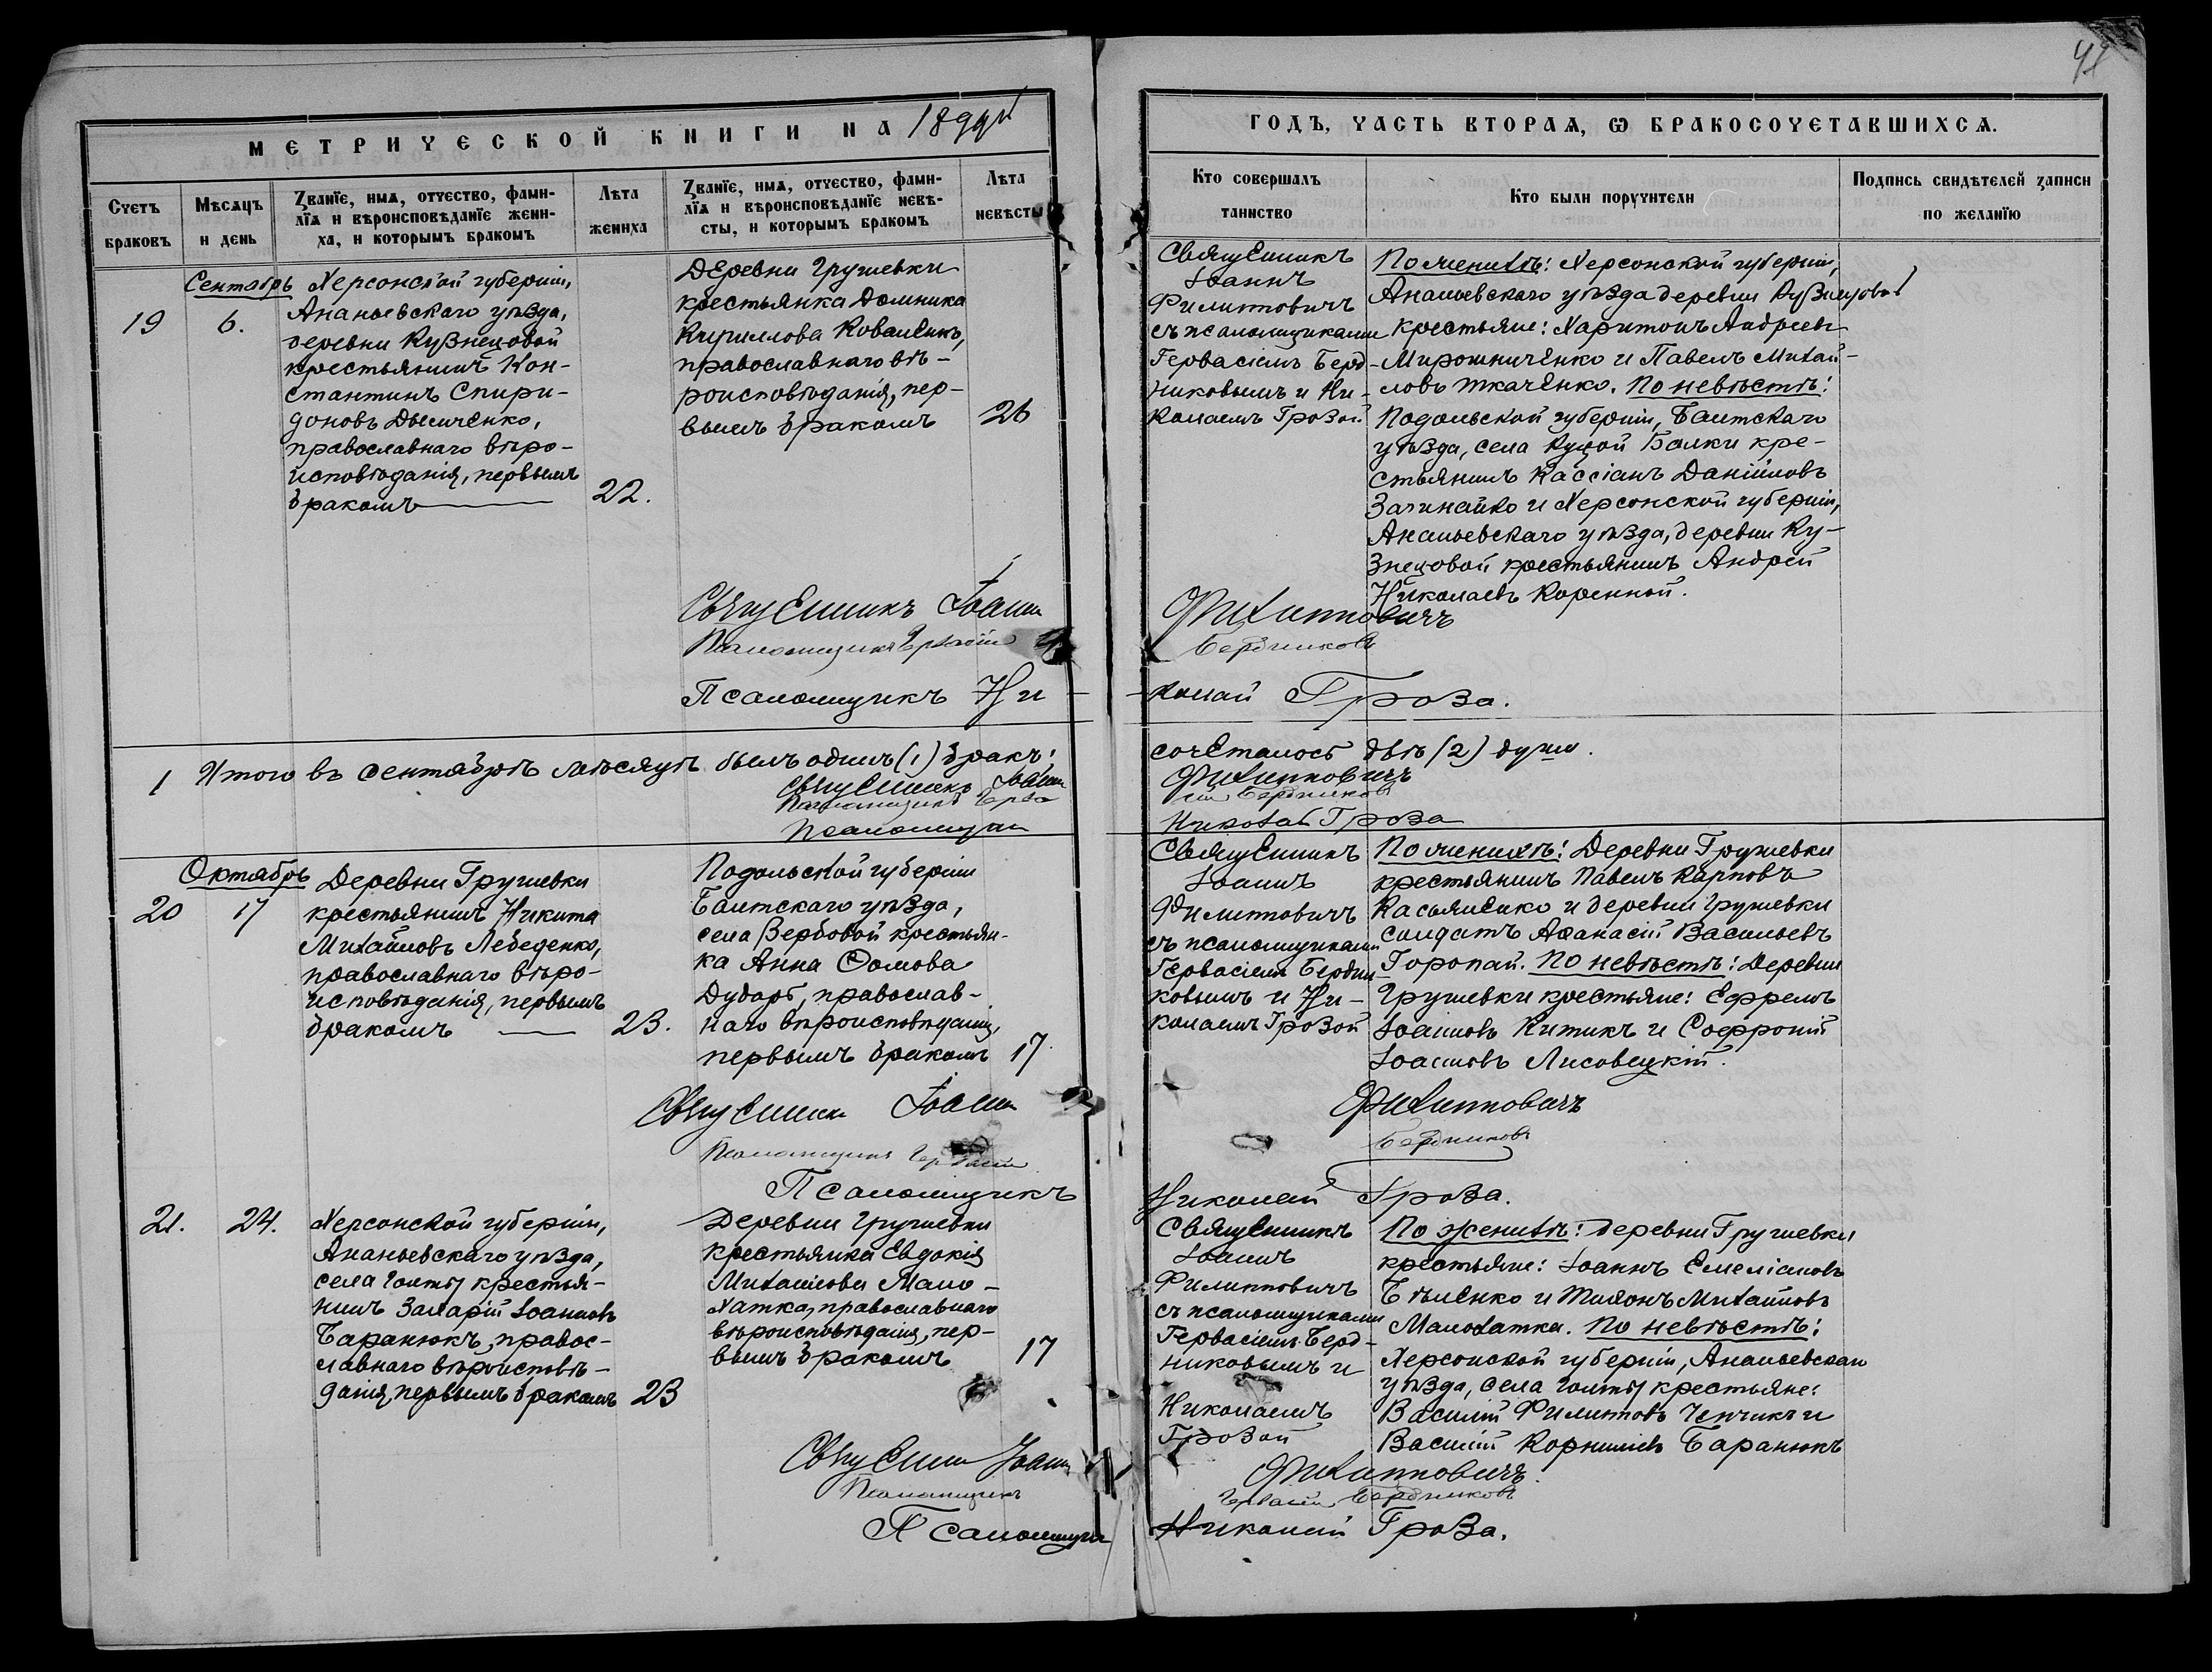 41
МЕТРИЧЕСКОЙ КНИГИ НА 1899й
ГОДЪ, ЧАСТЬ ВТОРАЯ, Ѡ БРАКОСОЧЕТАВШИХСЯ.
Счетъ браковъ
Мѣсяцъ и день
Званїе, имя, отчество, фами-
лїя и вѣроисповѣданїе жени-
ха, и которымъ бракомъ
Лѣта жениха
Званїе, имя, отчество, фами-
лїя и вѣроисповѣданїе невѣ-
сты, и которымъ бракомъ
Лѣта невѣсты
Кто совершалъ таинство
Кто были поручители
Подпись свидѣтелей записи по желанїю
19
Сентябрь
6.
Херсонской губерніи,
Ананьевскаго уѣзда,
деревни Кузнецовой
крестьянинъ Кон-
стантинъ Спири-
доновъ Дымченко,
православнаго вѣро-
исповѣданія, первымъ
бракомъ
22.
Деревни Грушевки
крестьянка Домника
Кириллова Коваленко,
православнаго вѣ-
роисповѣданія, пер-
вымъ бракомъ
26
Священникъ
Іоаннъ
Филипповичъ
съ псаломщиками
Гервасіемъ Берд-
никовымъ и Ни-
колаемъ Грозой.
По женихѣ: Херсонской губерніи,
Ананьевскаго уѣзда деревни Кузнецовой
крестьяне: Харитонъ Андреевъ
Мирошниченко и Павелъ Михай-
ловъ Ткаченко. По невѣстѣ:
Подольской губерніи, Балтскаго
уѣзда, села Куцой Балки кре-
стьянинъ Кассіанъ Даніиловъ
Зачинайко и Херсонской губерніи,
Ананьевскаго уѣзда, деревни Ку-
знецовой крестьянинъ Андрей
Николаевъ Коренной.
Священникъ Іоаннъ Филипповичъ
Псаломщикъ Гервасій Бердниковъ
Псаломщикъ Ни-колай Гроза.
1 Итого въ сентябрѣ мѣсяцѣ былъ одинъ (1) бракъ; сочеталось двѣ (2) души.
Священникъ Іоаннъ Филипповичъ
Псаломщикъ Гервасій Бердниковъ
Псаломщикъ Николай Гроза
20
Октябрь
17
Деревни Грушевки
крестьянинъ Никита
Михайловъ Лебеденко,
православнаго вѣро-
исповѣданія, первымъ
бракомъ
23.
Подольской губерніи
Балтскаго уѣзда,
села Вербовой крестьян-
ка Анна Сомова
Дубарь, православ-
наго вѣроисповѣданія,
первымъ бракомъ
17.
Священникъ
Іоаннъ
Филипповичъ
съ псаломщиками
Гервасіемъ Бердни
ковымъ и Ни-
колаемъ Грозой
По женихѣ: Деревни Грушевки
крестьянинъ Павелъ Карповъ
Касьяненко и деревни Грушевки
солдатъ Аѳанасій Васильевъ
Горопай. По невѣстѣ: Деревни
Грушевки крестьяне: Ефремъ
Іоанновъ Китикъ и Софроній
Іоанновъ Лисовецкій.
Священникъ Іоаннъ Филипповичъ
Псаломщикъ Гервасій Бердниковъ
Псаломщикъ Николай Гроза.
21.
24.
Херсонской губерніи,
Ананьевскаго уѣзда,
села Голты крестья-
нинъ Захарій Іоанновъ
Баранюкъ, правос-
лавнаго вѣроисповѣ-
данія, первымъ бракомъ
23
Деревни Грушевки
крестьянка Евдокія
Михайлова Мало-
хатка, православнаго
вѣроисповѣданія, пер-
вымъ бракомъ
17
Священникъ
Іоаннъ
Филипповичъ
съ псаломщиками
Гервасіемъ Берд-
никовымъ и
Николаемъ
Грозой
По женихѣ: деревни Грушевки
крестьяне: Іоаннъ Емеліановъ
Бѣленко и Тихонъ Михайловъ
Малохатка. По невѣстѣ:
Херсонской губерніи, Ананьевскаго
уѣзда, села Голты крестьяне:
Василій Филипповъ Чепчикъ и
Василій Корниліевъ Баранюкъ
Священникъ Іоаннъ Филипповичъ.
Псаломщикъ Гервасій Бердниковъ
Псаломщикъ Николай Гроза.